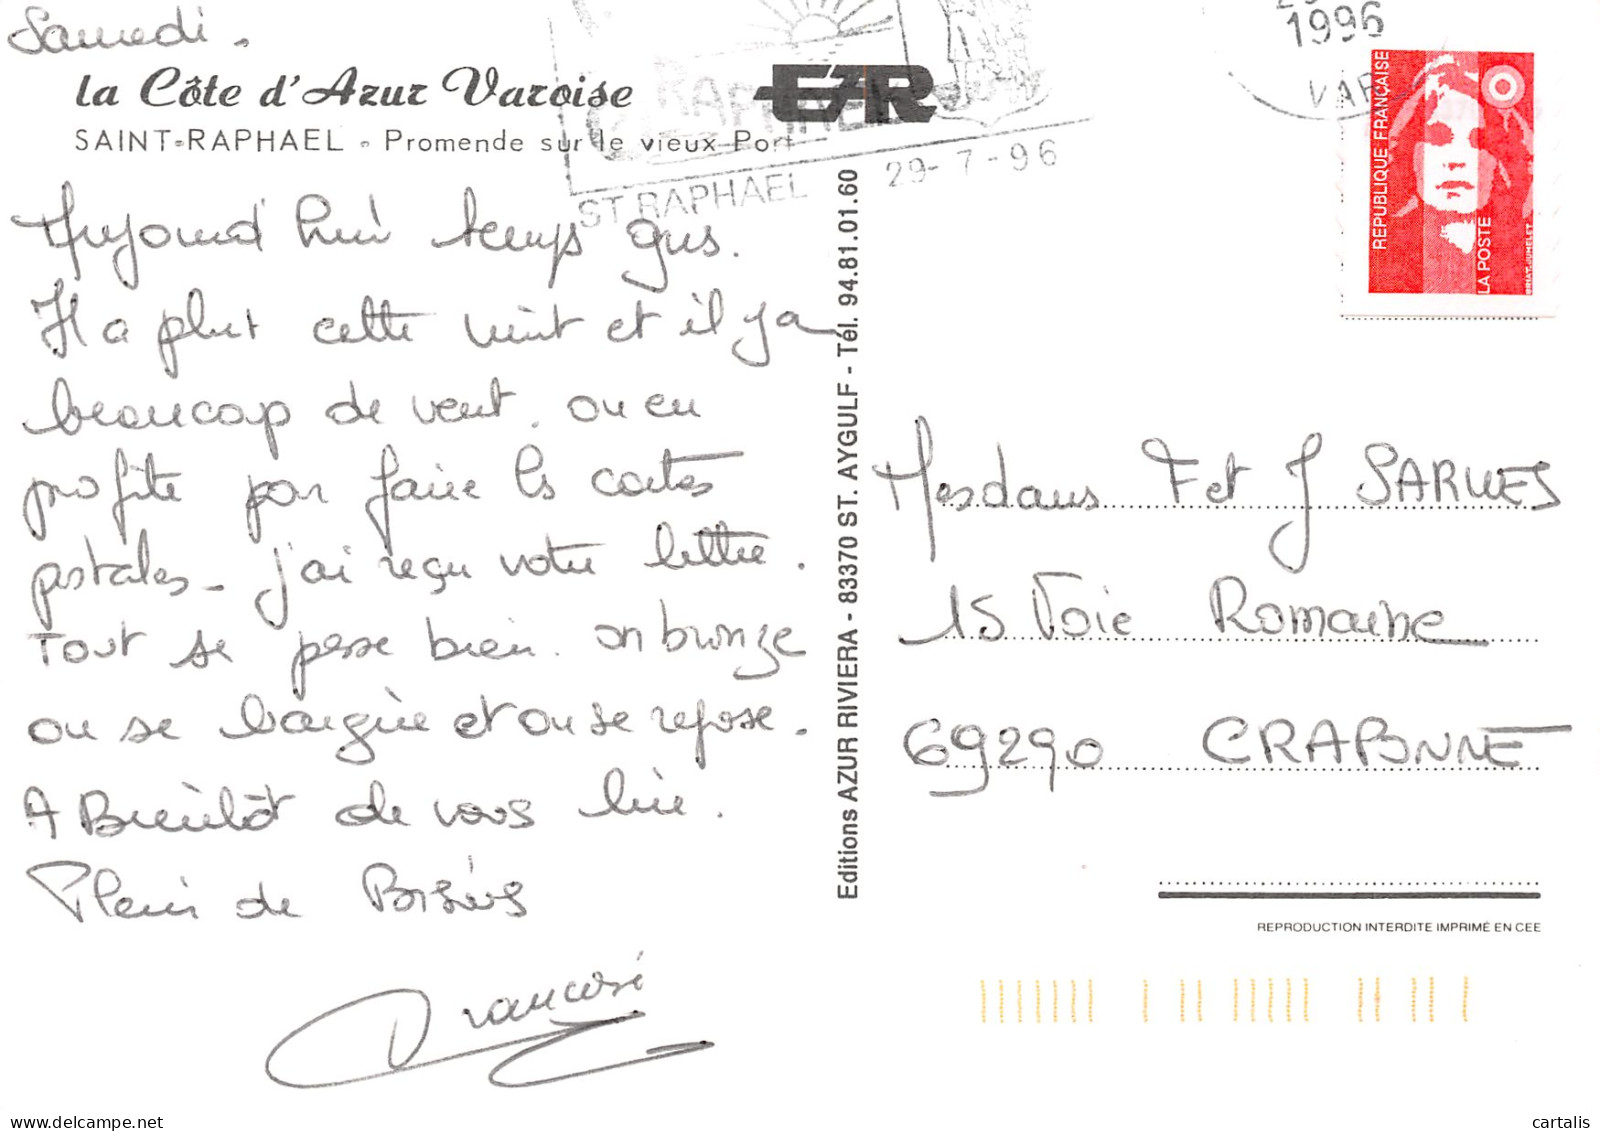 Samedi.
la Côte d'Azur Varoise
SAINT-RAPHAEL - Promende sur le vieux Port
EAR
ST RAPHAEL 29-7-96
1996
VAR
REPUBLIQUE FRANÇAISE
LA POSTE
BRIAT-JUMELET
Aujourd'hui temps gris.
Il a plut cette nuit et il y a
beaucoup de vent. on en
profite pour faire les cartes
postales - j'ai reçu votre lettre.
Tout se passe bien. on bronze
on se baigne et on se repose.
A Bientôt de vous lire.
Plein de Bisous
Editions AZUR RIVIERA - 83370 ST. AYGULF - Tél. 94.81.01.60
Mesdams F et J SARWES
15 Voie Romaine
69290 CRAPONNE
REPRODUCTION INTERDITE IMPRIMÉ EN CEE
cartalis